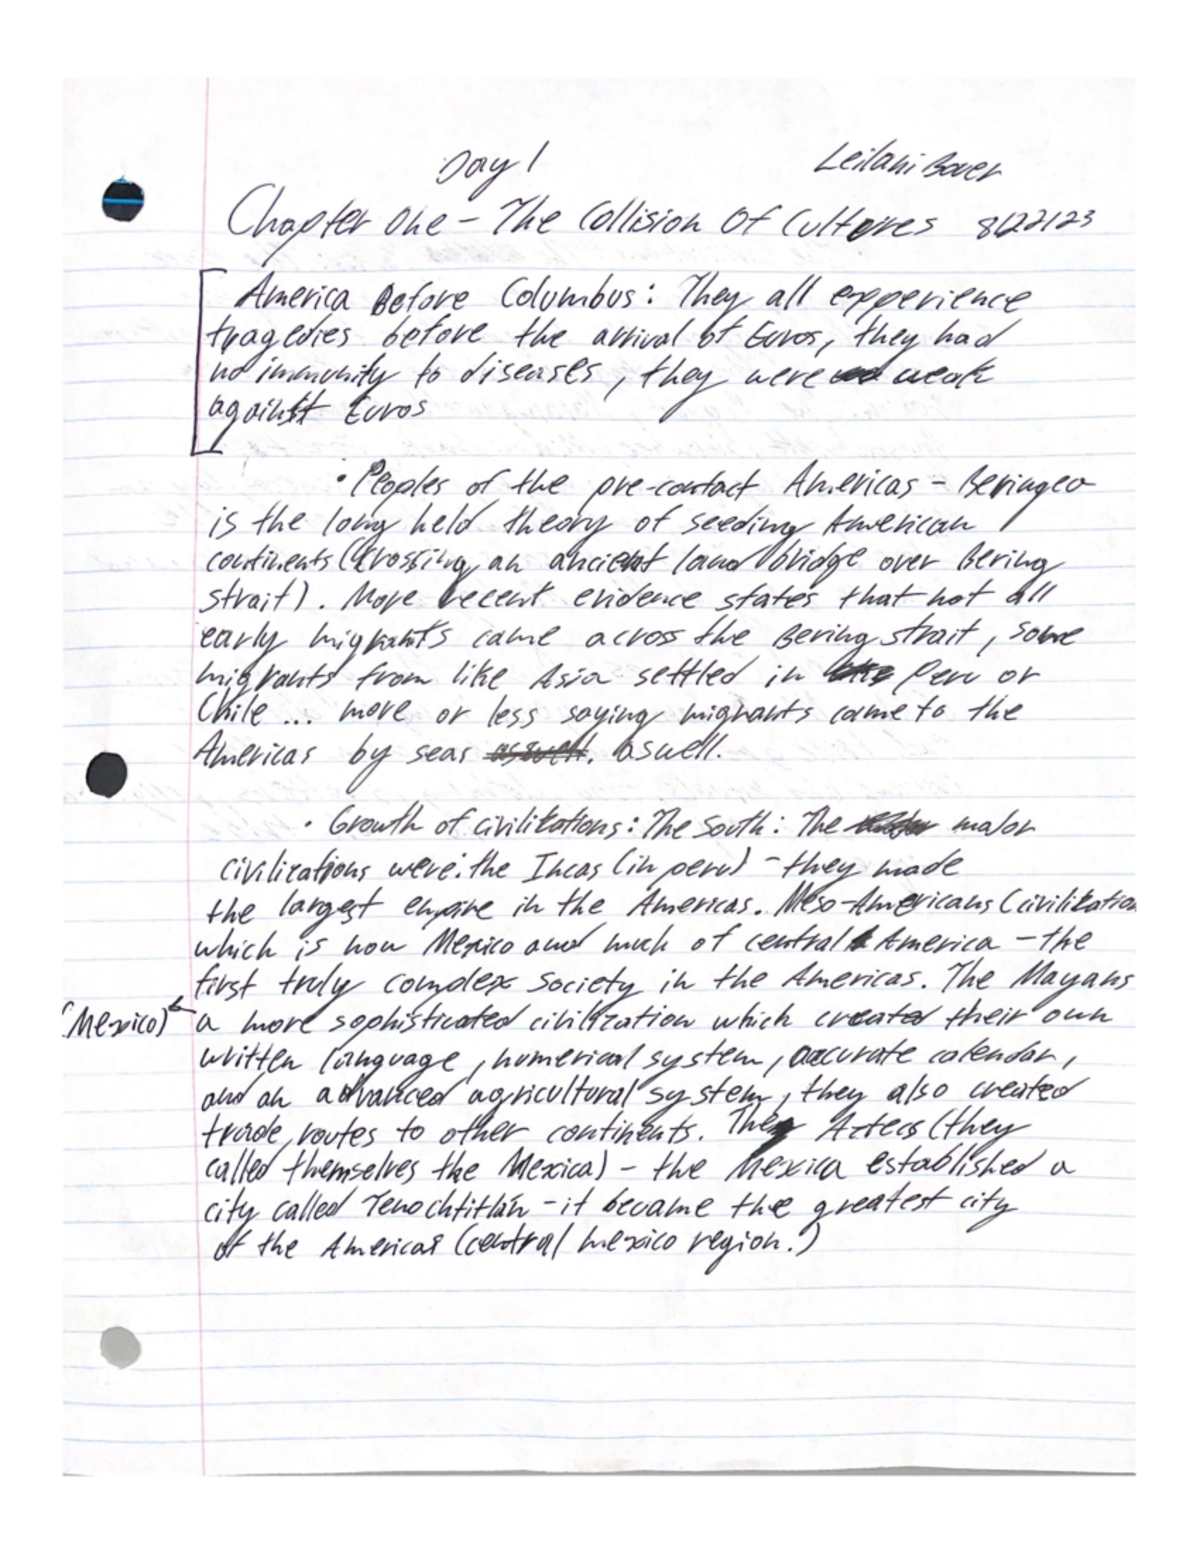 Day 1 Leilani Bauer
Chapter One - The Collision Of Cultures 8/22/23
America Before Columbus: They all experience
tragedies before the arrival of Euros, they had
no immunity to diseases, they were weak
against Euros
• Peoples of the pre-contact Americas - Beringea
is the long held theory of seeding American
continents (Crossing an ancient land bridge over Bering
strait). More recent evidence states that not all
early migrants came across the Bering strait, some
migrants from like Asia settled in Peru or
Chile ... more or less saying migrants came to the
Americas by seas aswell.
• Growth of civilizations: The South: The major
civilizations were: the Incas (in peru) - they made
the largest empire in the Americas. Meso-Americans (civilization
which is now Mexico and much of central America - the
first truly complex society in the Americas. The Mayans
(Mexico) a more sophisticated civilization which created their own
written language, numerical system, accurate calendar,
and an advanced agricultural system, they also created
trade routes to other continents. The Aztecs (they
called themselves the Mexica) - the Mexica established a
city called Tenochtitlán - it became the greatest city
of the Americas (central mexico region.)